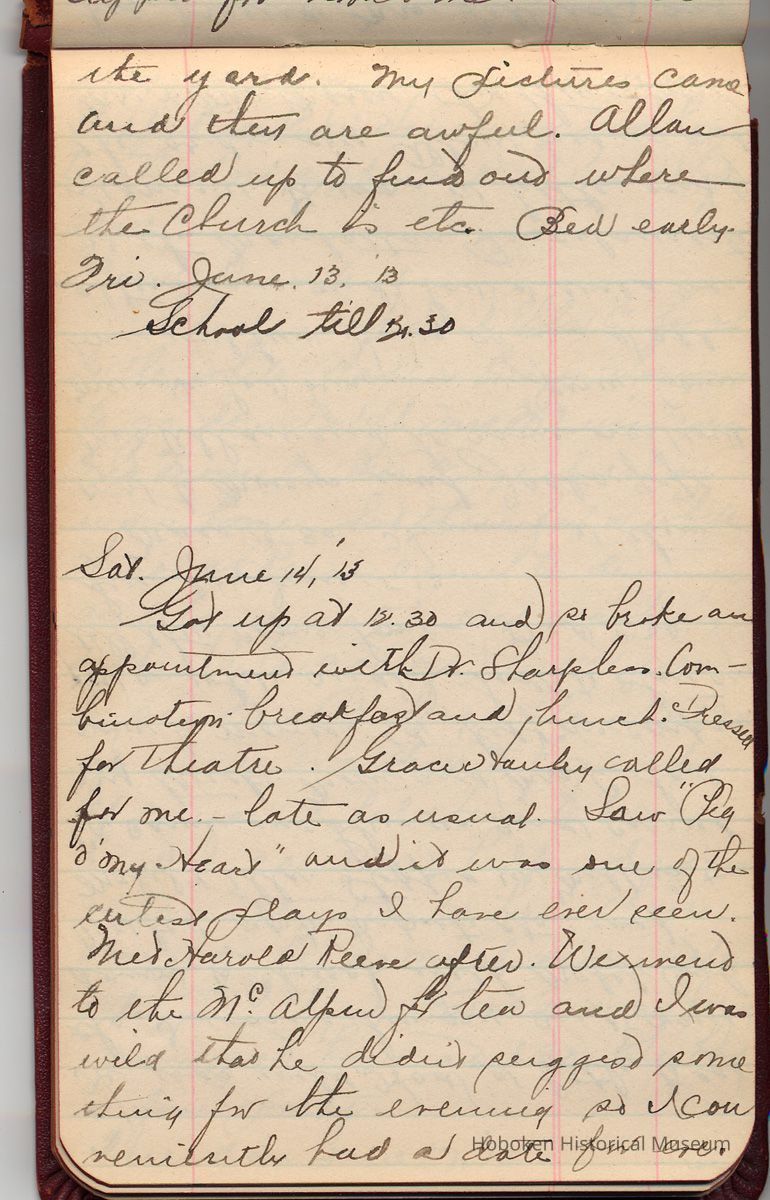 the yard. My pictures came
and they are awful. Allan
called up to find out where
the Church is etc. Bed early.
Fri. June. 13, '13
School till 4.30
Sat. June 14, '13
Got up at 12.30 and so broke an
appointment with Dr. Sharpless. Com-
bination breakfast and lunch. Dressed
for Theatre. Grace called
for me. - late as usual. Saw "Peg
o' my Heart" and it was one of the
cutest plays I have ever seen.
Met Harold Reeve after. We went
to the Mc Alpin for tea and I was
wild that he didn't suggest some
thing for the evening so I con
veniently had a date for eve.
Hoboken Historical Museum